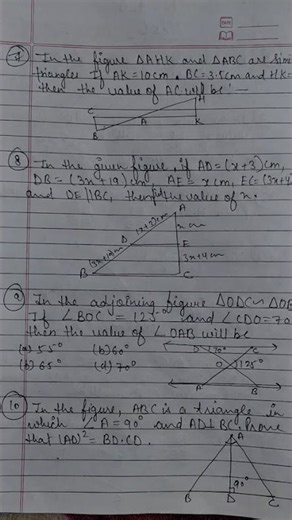 7 In the figure ΔAHK and ΔABC are simi
triangles If AK = 10cm, BC = 3.5cm and HK =
then the value of AC will be :-
H
C
A
K
B
8 In the given figure, if AD = (x+3) cm,
DB = (3x+19) cm, AE = x cm, EC = (3x+4
and DE || BC, then find the value of x.
A
(x+3)cm
x cm
D
E
(3x+19)cm
3x+4 cm
B
C
9 In the adjoining figure ΔODC ~ ΔOB
If ∠BOC = 125° and ∠CDO = 70
then the value of ∠OAB will
(a) 55° (b) 60°
(b) 65° (d) 70°
D 70° C
O 125°
A B
10 In the figure, ABC is a triangle in
which ∠A = 90° and AD⊥BC. Prove
that (AD)² = BD·CD.
A
90°
B D C